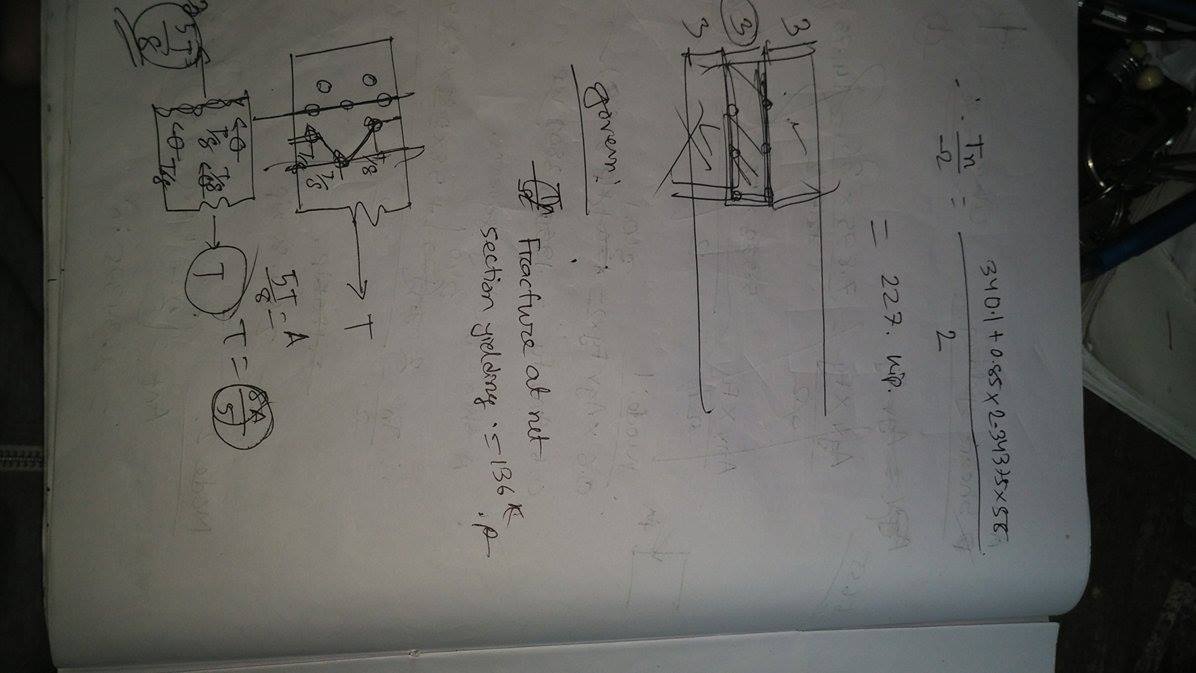 ∴ Tn/2 = 340.1 + 0.85 × 2.34375 × 58 / 2
= 227. kip.
3 3 3
govern:
Fracture at net
section yielding. = 136 k
T/8
T/8
T/8
T
5T/8
T/8
T/8
T/8
T
5T/8 = A
T = 8A/5